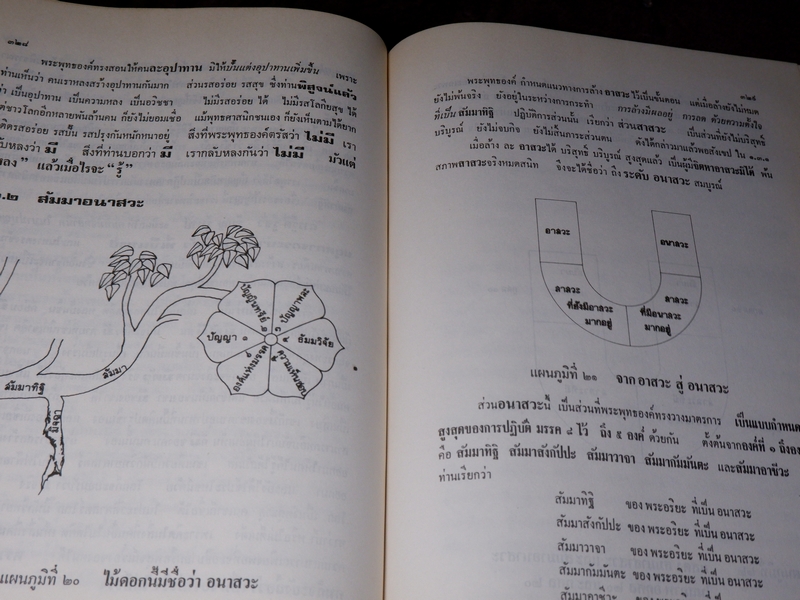 ๓๒๘
พระพุทธองค์ทรงสอนให้คนละอุปาทาน มิให้ปั้นแต่งอุปาทานเพิ่มขึ้น เพราะ
ท่านเห็นว่า คนเราหลงสร้างอุปาทานกันมาก ส่วนรสอร่อย รสสุข ซึ่งท่านพิสูจน์แล้ว
ว่า เป็นอุปาทาน เป็นความหลง เป็นอวิชชา ไม่มีรสอร่อย ได้ ไม่มีรสโลกียสุข ได้
แต่ชาวโลกอีกหลายพันล้านคน ก็ยังไม่ยอมเชื่อ แม้พุทธศาสนิกชนเอง ก็ยังเห็นตามได้ยาก
ติดรสอร่อย รสปั้น รสปรุงกันหนักหนาอยู่ สิ่งที่พระพุทธองค์ตรัสว่า ไม่มี เรา
กลับหลงว่า มี สิ่งที่ท่านบอกว่า มี เรากลับหลงกันว่า ไม่มี มัวแต่
“หลง” แล้วเมื่อไรจะ “รู้”
๒ สัมมาอนาสวะ
ปัญญา ๑
ปัญญินทรีย์ ๒
ปัญญาพละ ๓
ธัมมวิจัย ๔
ความเห็นชอบ ๕
องค์แห่งมรรค ๖
สัมมา
สัมมาทิฐิ
มิจฉา
แผนภูมิที่ ๒๐ ไม้ดอกนี้มีชื่อว่า อนาสวะ
๓๒๙
พระพุทธองค์ กำหนดแนวทางการล้าง อาสวะ ไว้เป็นขั้นตอน แต่เมื่อล้างยังไม่หมด
ยังไม่พ้นจริง ยังอยู่ในระหว่างการกระทำ การล้างมีผลอยู่ การลด ด้วยความตั้งใจ
ที่เป็น สัมมาทิฐิ ปฏิบัติการส่วนนั้น เรียกว่า ส่วนสาสวะ เป็นส่วนที่ยังไม่บริสุทธิ์
บริบูรณ์ ยังไม่จบกิจ ยังไม่สิ้นภาระส่วนตน ดังได้กล่าวมาแล้วพอสังเขป ใน ๑.๓.๑
เมื่อล้าง ละ อาสวะได้ บริสุทธิ์ บริบูรณ์ สูงสุดแล้ว เป็นผู้มีจิตหาอาสวะมิได้ พ้น
สภาพสาสวะจริงหมดสนิท จึงจะได้ชื่อว่า ถึง ระดับ อนาสวะ สมบูรณ์
อาสวะ
อนาสวะ
สาสวะ
ที่ยังมีอาสวะ
มากอยู่
สาสวะ
ที่มีอนาสวะ
มากอยู่
แผนภูมิที่ ๒๑ จาก อาสวะ สู่ อนาสวะ
ส่วนอนาสวะนี้ เป็นส่วนที่พระพุทธองค์ทรงวางมาตรการ เป็นแบบกำหนด
สูงสุดของการปฏิบัติ มรรค ๘ ไว้ ถึง ๕ องค์ ด้วยกัน ตั้งต้นจากองค์ที่ ๑ ถึงอง
คือ สัมมาทิฐิ สัมมาสังกัปปะ สัมมาวาจา สัมมากัมมันตะ และสัมมาอาชีวะ
ท่านเรียกว่า
สัมมาทิฐิ ของ พระอริยะ ที่เป็น อนาสวะ
สัมมาสังกัปปะ ของ พระอริยะ ที่เป็น อนาสวะ
สัมมาวาจา ของ พระอริยะ ที่เป็น อนาสวะ
สัมมากัมมันตะ ของ พระอริยะ ที่เป็น อนาสวะ